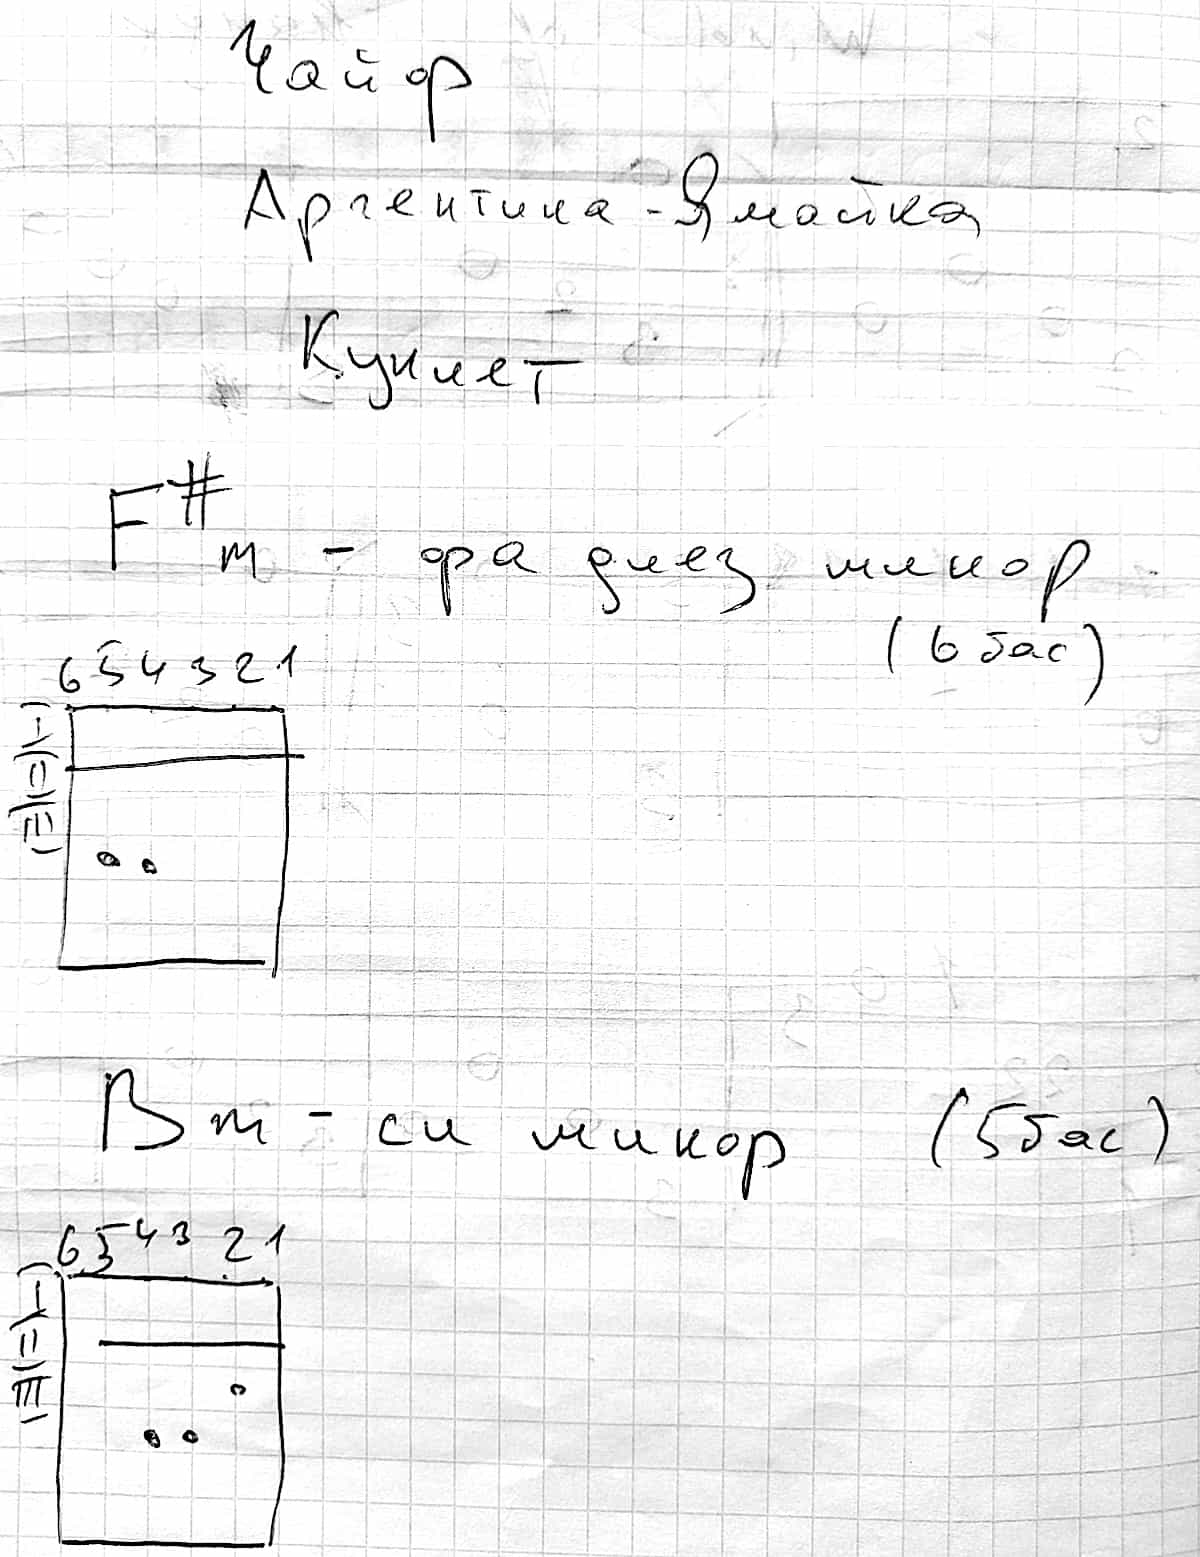 Чайф
Аргентина-Ямайка
Куплет
F#m - фа диез минор
(6 бас)
6 5 4 3 2 1
I
II
III
Bm - си минор (5 бас)
6 5 4 3 2 1
I
II
III